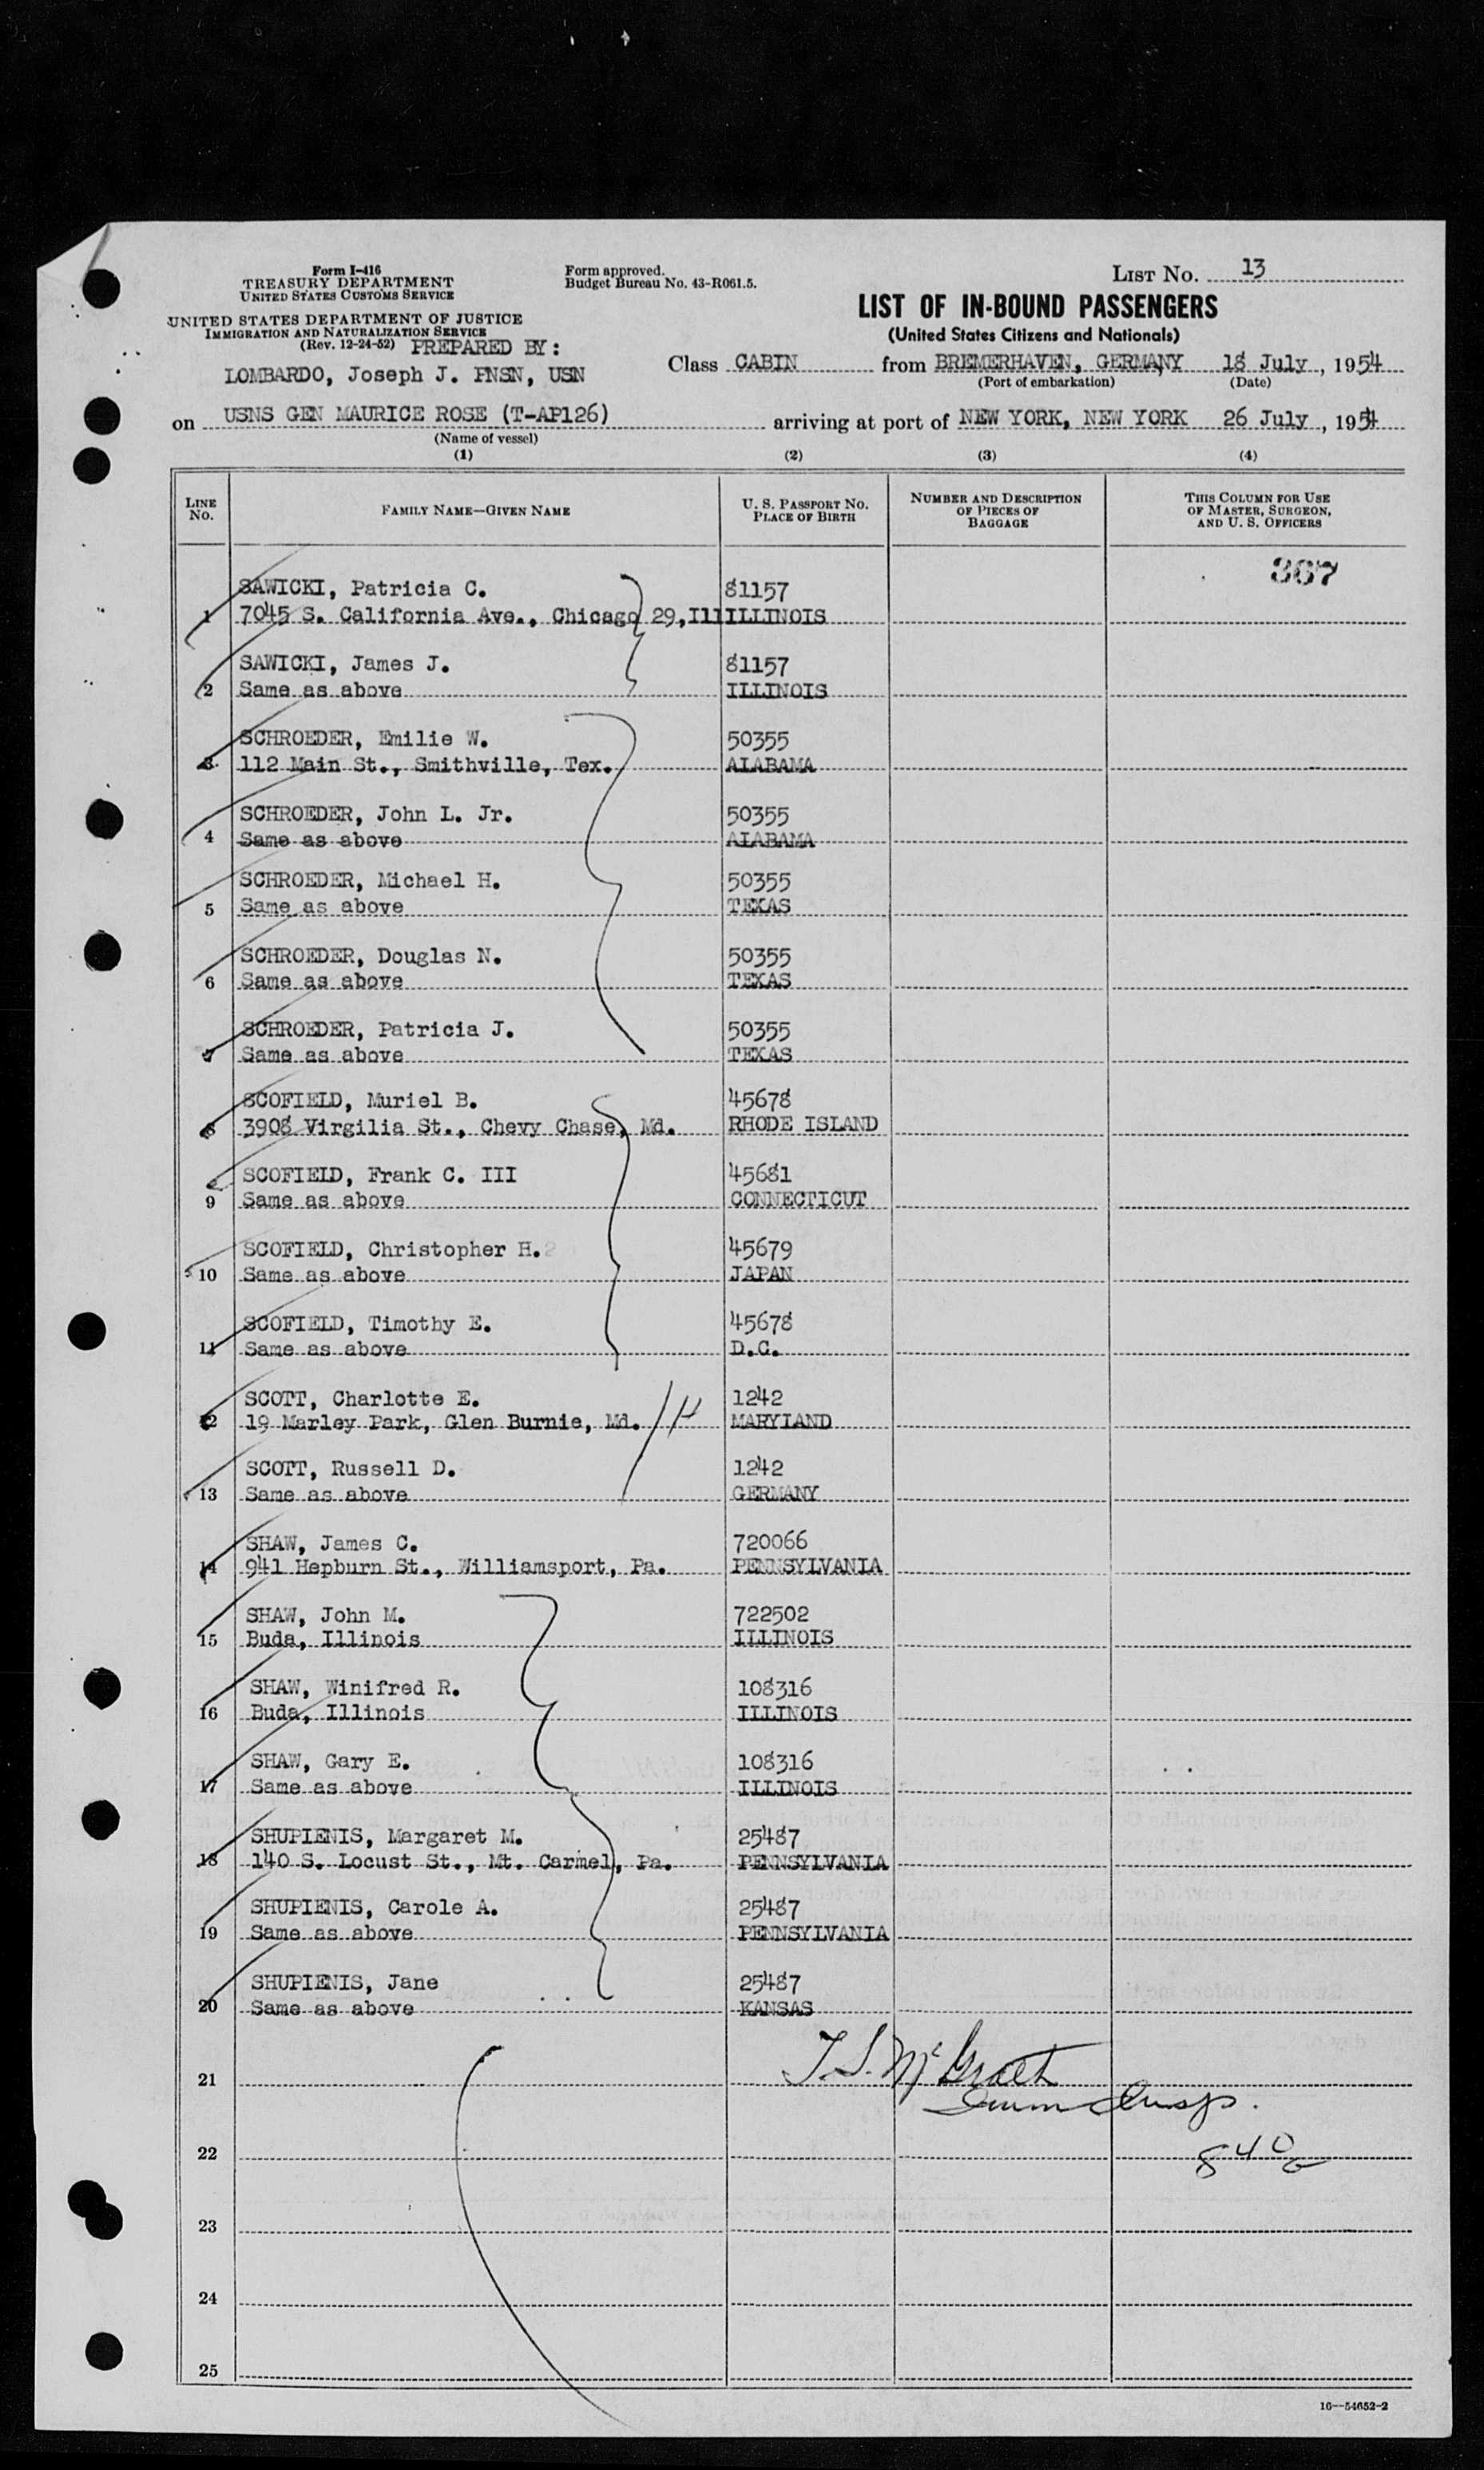 Form I-416
TREASURY DEPARTMENT
UNITED STATES CUSTOMS SERVICE
UNITED STATES DEPARTMENT OF JUSTICE
IMMIGRATION AND NATURALIZATION SERVICE
(Rev. 12-24-52) PREPARED BY:
LOMBARDO, Joseph J. PNSN, USN
Form approved.
Budget Bureau No. 43-R061.5.
LIST No. 13
LIST OF IN-BOUND PASSENGERS
(United States Citizens and Nationals)
Class CABIN from BREMERHAVEN, GERMANY 18 July, 1954
(Port of embarkation) (Date)
on USNS GEN MAURICE ROSE (T-AP126) arriving at port of NEW YORK, NEW YORK 26 July, 1954
(Name of vessel)
(1) (2) (3) (4)
LINE No. FAMILY NAME—GIVEN NAME U. S. PASSPORT No. PLACE OF BIRTH NUMBER AND DESCRIPTION OF PIECES OF BAGGAGE THIS COLUMN FOR USE OF MASTER, SURGEON, AND U. S. OFFICERS
367
SAWICKI, Patricia C. 81157
1 7045 S. California Ave., Chicago 29,Ill ILLINOIS
SAWICKI, James J. 81157
2 Same as above ILLINOIS
SCHROEDER, Emilie W. 50355
3 112 Main St., Smithville, Tex. ALABAMA
SCHROEDER, John L. Jr. 50355
4 Same as above ALABAMA
SCHROEDER, Michael H. 50355
5 Same as above TEXAS
SCHROEDER, Douglas N. 50355
6 Same as above TEXAS
SCHROEDER, Patricia J. 50355
7 Same as above TEXAS
SCOFIELD, Muriel B. 45678
8 3908 Virgilia St., Chevy Chase, Md. RHODE ISLAND
SCOFIELD, Frank C. III 45681
9 Same as above CONNECTICUT
SCOFIELD, Christopher H. 45679
10 Same as above JAPAN
SCOFIELD, Timothy E. 45678
11 Same as above D.C.
SCOTT, Charlotte E. 1242
12 19 Marley Park, Glen Burnie, Md. MARYLAND
SCOTT, Russell D. 1242
13 Same as above GERMANY
SHAW, James C. 720066
14 941 Hepburn St., Williamsport, Pa. PENNSYLVANIA
SHAW, John M. 722502
15 Buda, Illinois ILLINOIS
SHAW, Winifred R. 108316
16 Buda, Illinois ILLINOIS
SHAW, Gary E. 108316
17 Same as above ILLINOIS
SHUPIENIS, Margaret M. 25487
18 140 S. Locust St., Mt. Carmel, Pa. PENNSYLVANIA
SHUPIENIS, Carole A. 25487
19 Same as above PENNSYLVANIA
SHUPIENIS, Jane 25487
20 Same as above KANSAS
T.S. McGrath
21
Imm Insp.
22
23
24
25
16—54652-2